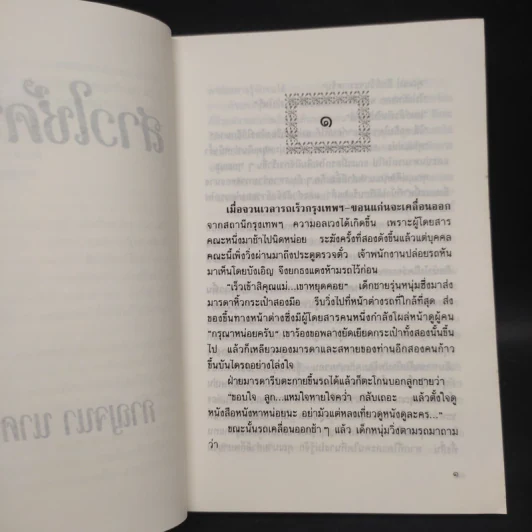 สาวใช้
กาญจนา นาค
๑
เมื่อจวนเวลารถเร็วกรุงเทพฯ-ขอนแก่นจะเคลื่อนออก
จากสถานีกรุงเทพๆ ความอลเวงได้เกิดขึ้น เพราะผู้โดยสาร
คณะหนึ่งมาช้าไปนิดหน่อย ระฆังครั้งที่สองดังขึ้นแล้วแต่บุคคล
คณะนี้เพิ่งวิ่งผ่านมาถึงประตูตรวจตั๋ว เจ้าพนักงานปล่อยรถหัน
มาเห็นโดยบังเอิญ จึงยกธงแดงห้ามรถไว้ก่อน
"เร็วเข้าสิคุณแม่...เขาหยุดคอย" เด็กชายรุ่นหนุ่มซึ่งมาส่ง
มารดาหิ้วกระเป๋าสองมือ รีบวิ่งไปที่หน้าต่างรถที่ใกล้ที่สุด ส่ง
ของขึ้นทางหน้าต่างซึ่งมีผู้โดยสารคนหนึ่งกำลังโผล่หน้าดูผู้คน
"กรุณาหน่อยครับ" เขาร้องขอพลางยัดเยียดกระเป๋าทั้งสองนั้นขึ้น
ไป แล้วก็เหลียวมองมารดาและสหายของท่านอีกสองคนก้าว
ขึ้นบันไดรถอย่างโล่งใจ
ฝ่ายมารดารีบตะกายขึ้นรถได้แล้วก็ตะโกนบอกลูกชายว่า
"ขอบใจ ลูก...แหมใจหายใจคว่ำ กลับเถอะ แล้วตั้งใจดู
หนังสือหนังหาหน่อยนะ อย่ามัวแต่หลงเที่ยวดูหนังดูละคร..."
ขณะนั้นรถเคลื่อนออกช้าๆ แล้ว เด็กหนุ่มวิ่งตามรถมาถาม
ว่า